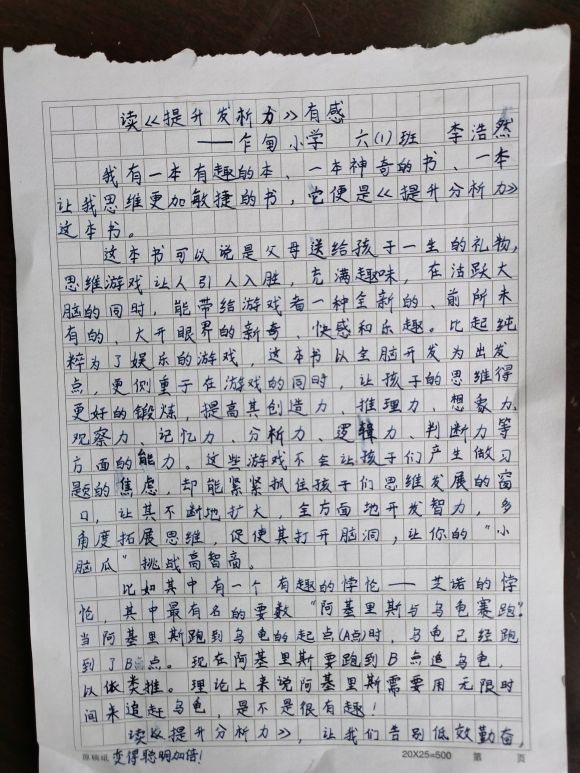 读《提升发析力》有感
——乍甸小学 六(1)班 李浩然
我有一本有趣的本、一本神奇的书、一本
让我思维更加敏捷的书，它便是《提升分析力》
这本书。
这本书可以说是父母送给孩子一生的礼物，
思维游戏让人引人入胜，充满趣味，在活跃大
脑的同时，能带给游戏者一种全新的、前所未
有的、大开眼界的新奇、快感和乐趣。比起纯
粹为了娱乐的游戏，这本书以全脑开发为出发
点，更侧重于在游戏的同时，让孩子的思维得
更好的锻炼，提高其创造力、推理力 想象力、
观察力、记忆力、分析力、逻辑力、判断力等
方面的能力。这些游戏不会让孩子们产生做习
题的焦虑，却能紧紧抓住孩子们思维发展的窗
口，让其不断地扩大，全方面地开发智力，多
角度拓展思维，促使其打开脑洞，让你的“小
脑瓜”挑战高智商。
比如其中有一个有趣的悖论——芝诺的悖
论，其中最有名的要数“阿基里斯与乌龟赛跑”。
当阿基里斯跑到乌龟的起点(A点)时，乌龟已经跑
到了B点。现在阿基里斯要跑到B点追乌龟，
以依类推。理论上来说阿基里斯需要用无限时
间来追赶乌龟，是不是很有趣！
读《提升分析力》，让我们告别低效勤奋，
变得聪明加倍！
原稿纸 20X25=500 第 页